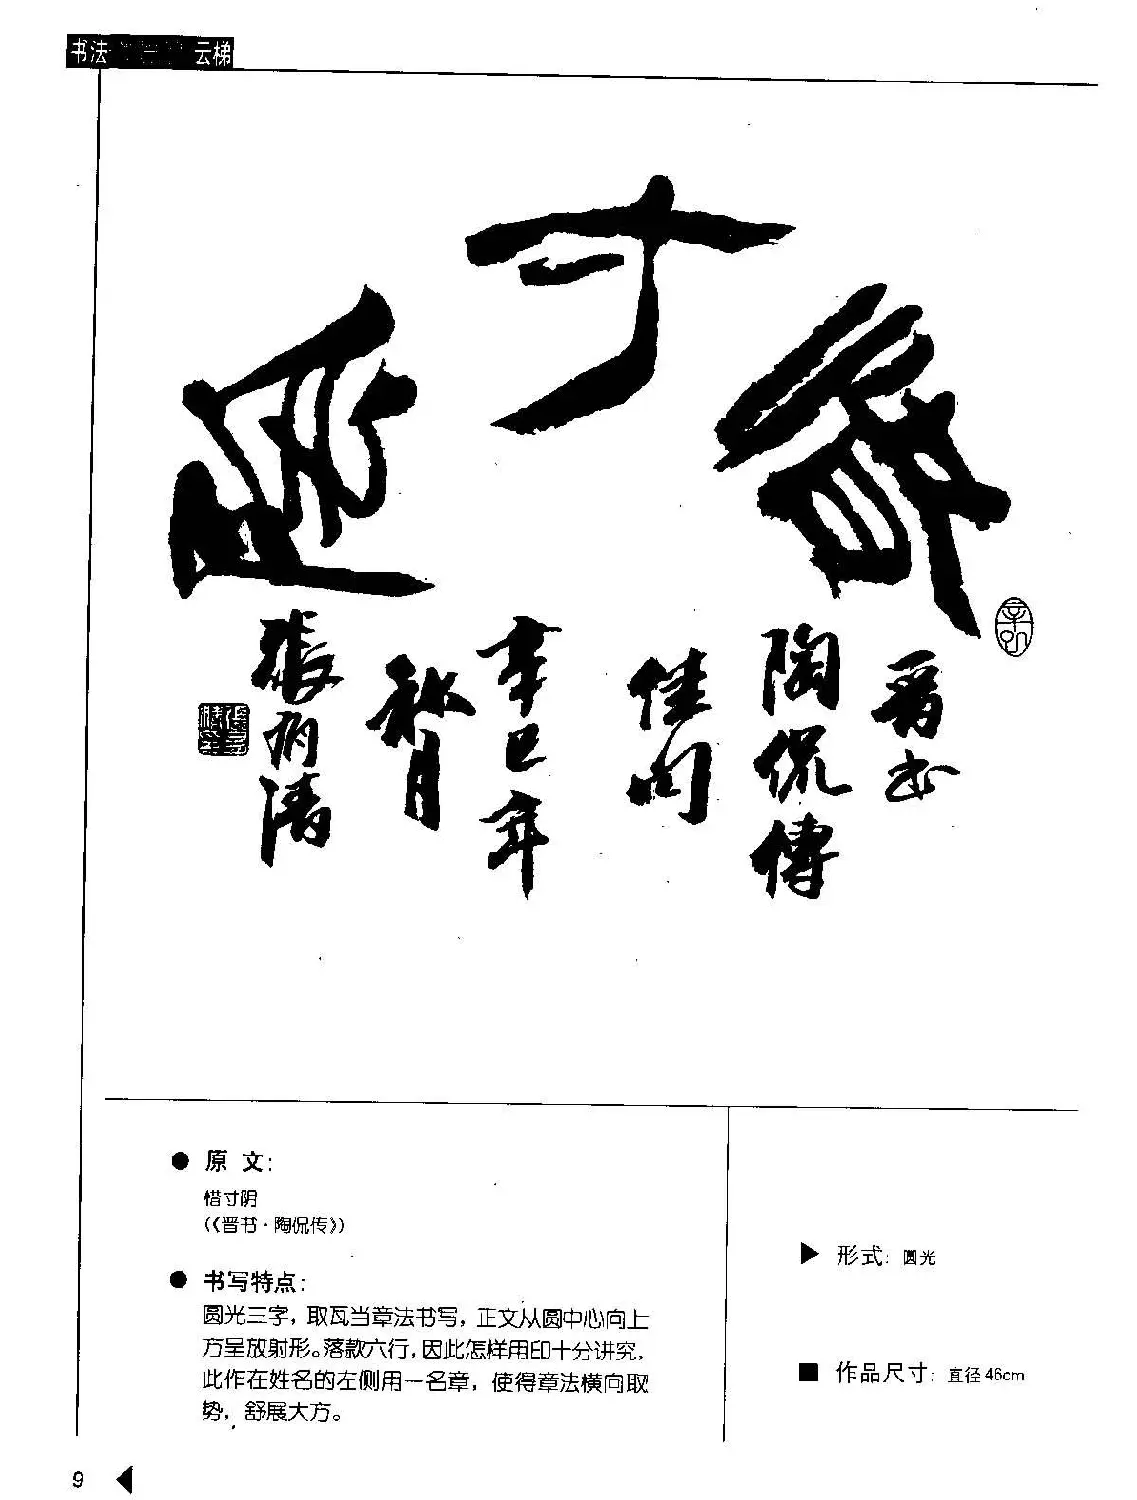 书法 云梯
惜寸阴
晋书
陶侃传
佳句
辛巳年
秋月
张炳清
原 文：
惜寸阴
（《晋书·陶侃传》）
书写特点：
圆光三字，取瓦当章法书写，正文从圆中心向上
方呈放射形。落款六行，因此怎样用印十分讲究，
此作在姓名的左侧用一名章，使得章法横向取
势，舒展大方。
形式：圆光
作品尺寸：直径46cm
9